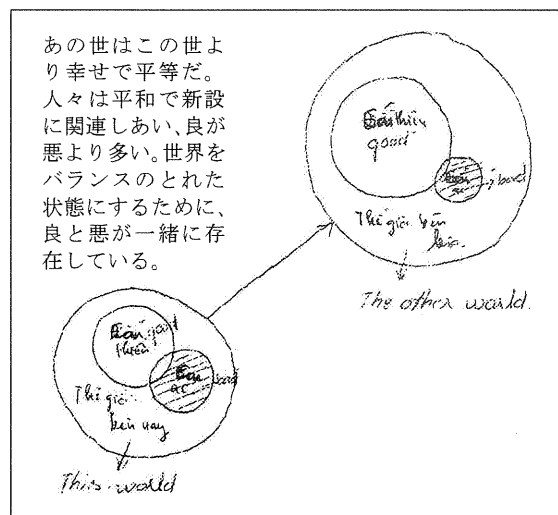 あの世はこの世よ
り幸せで平等だ。
人々は平和で新設
に関連しあい、良が
悪より多い。世界を
バランスのとれた
状態にするために、
良と悪が一緒に存
在している。
good
bad
Thế giới bên
kia
The other world.
good
thiện
ác
bad
Thế giới
bên này
This world